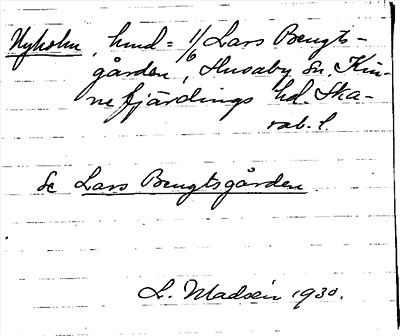 Nyholm, hmd = 1/6 Lars Bengts-
gården, Husaby sn, Kin-
ne fjärdings hd. Ska-
rab. l.
Se Lars Bengtsgården
L. Madsén 1930.